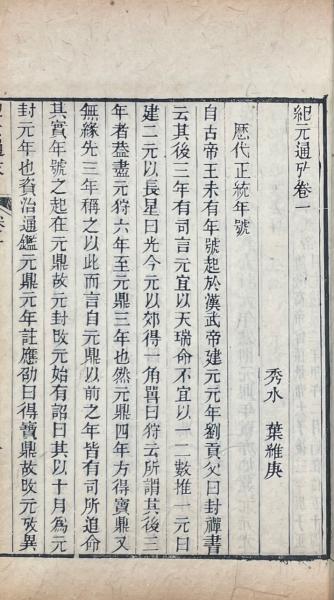 紀元通攷卷一
秀水 葉維庚
歷代正統年號
自古帝王未有年號起於漢武帝建元元年劉貢父曰封禪書
云其後三年有司言元宜以天瑞命不宜以一二數推一元曰
建二元以長星曰光今元以郊得一角獸曰狩云所謂其後三
年者葢盡元狩六年至元鼎三年也然元鼎四年方得寶鼎又
無緣先三年稱之以此而言自元鼎以前之年皆有司所追命
其實年號之起在元鼎故元封改元始有詔曰其以十月為元
封元年也資治通鑑元鼎元年註應劭曰得寶鼎故改元攷異